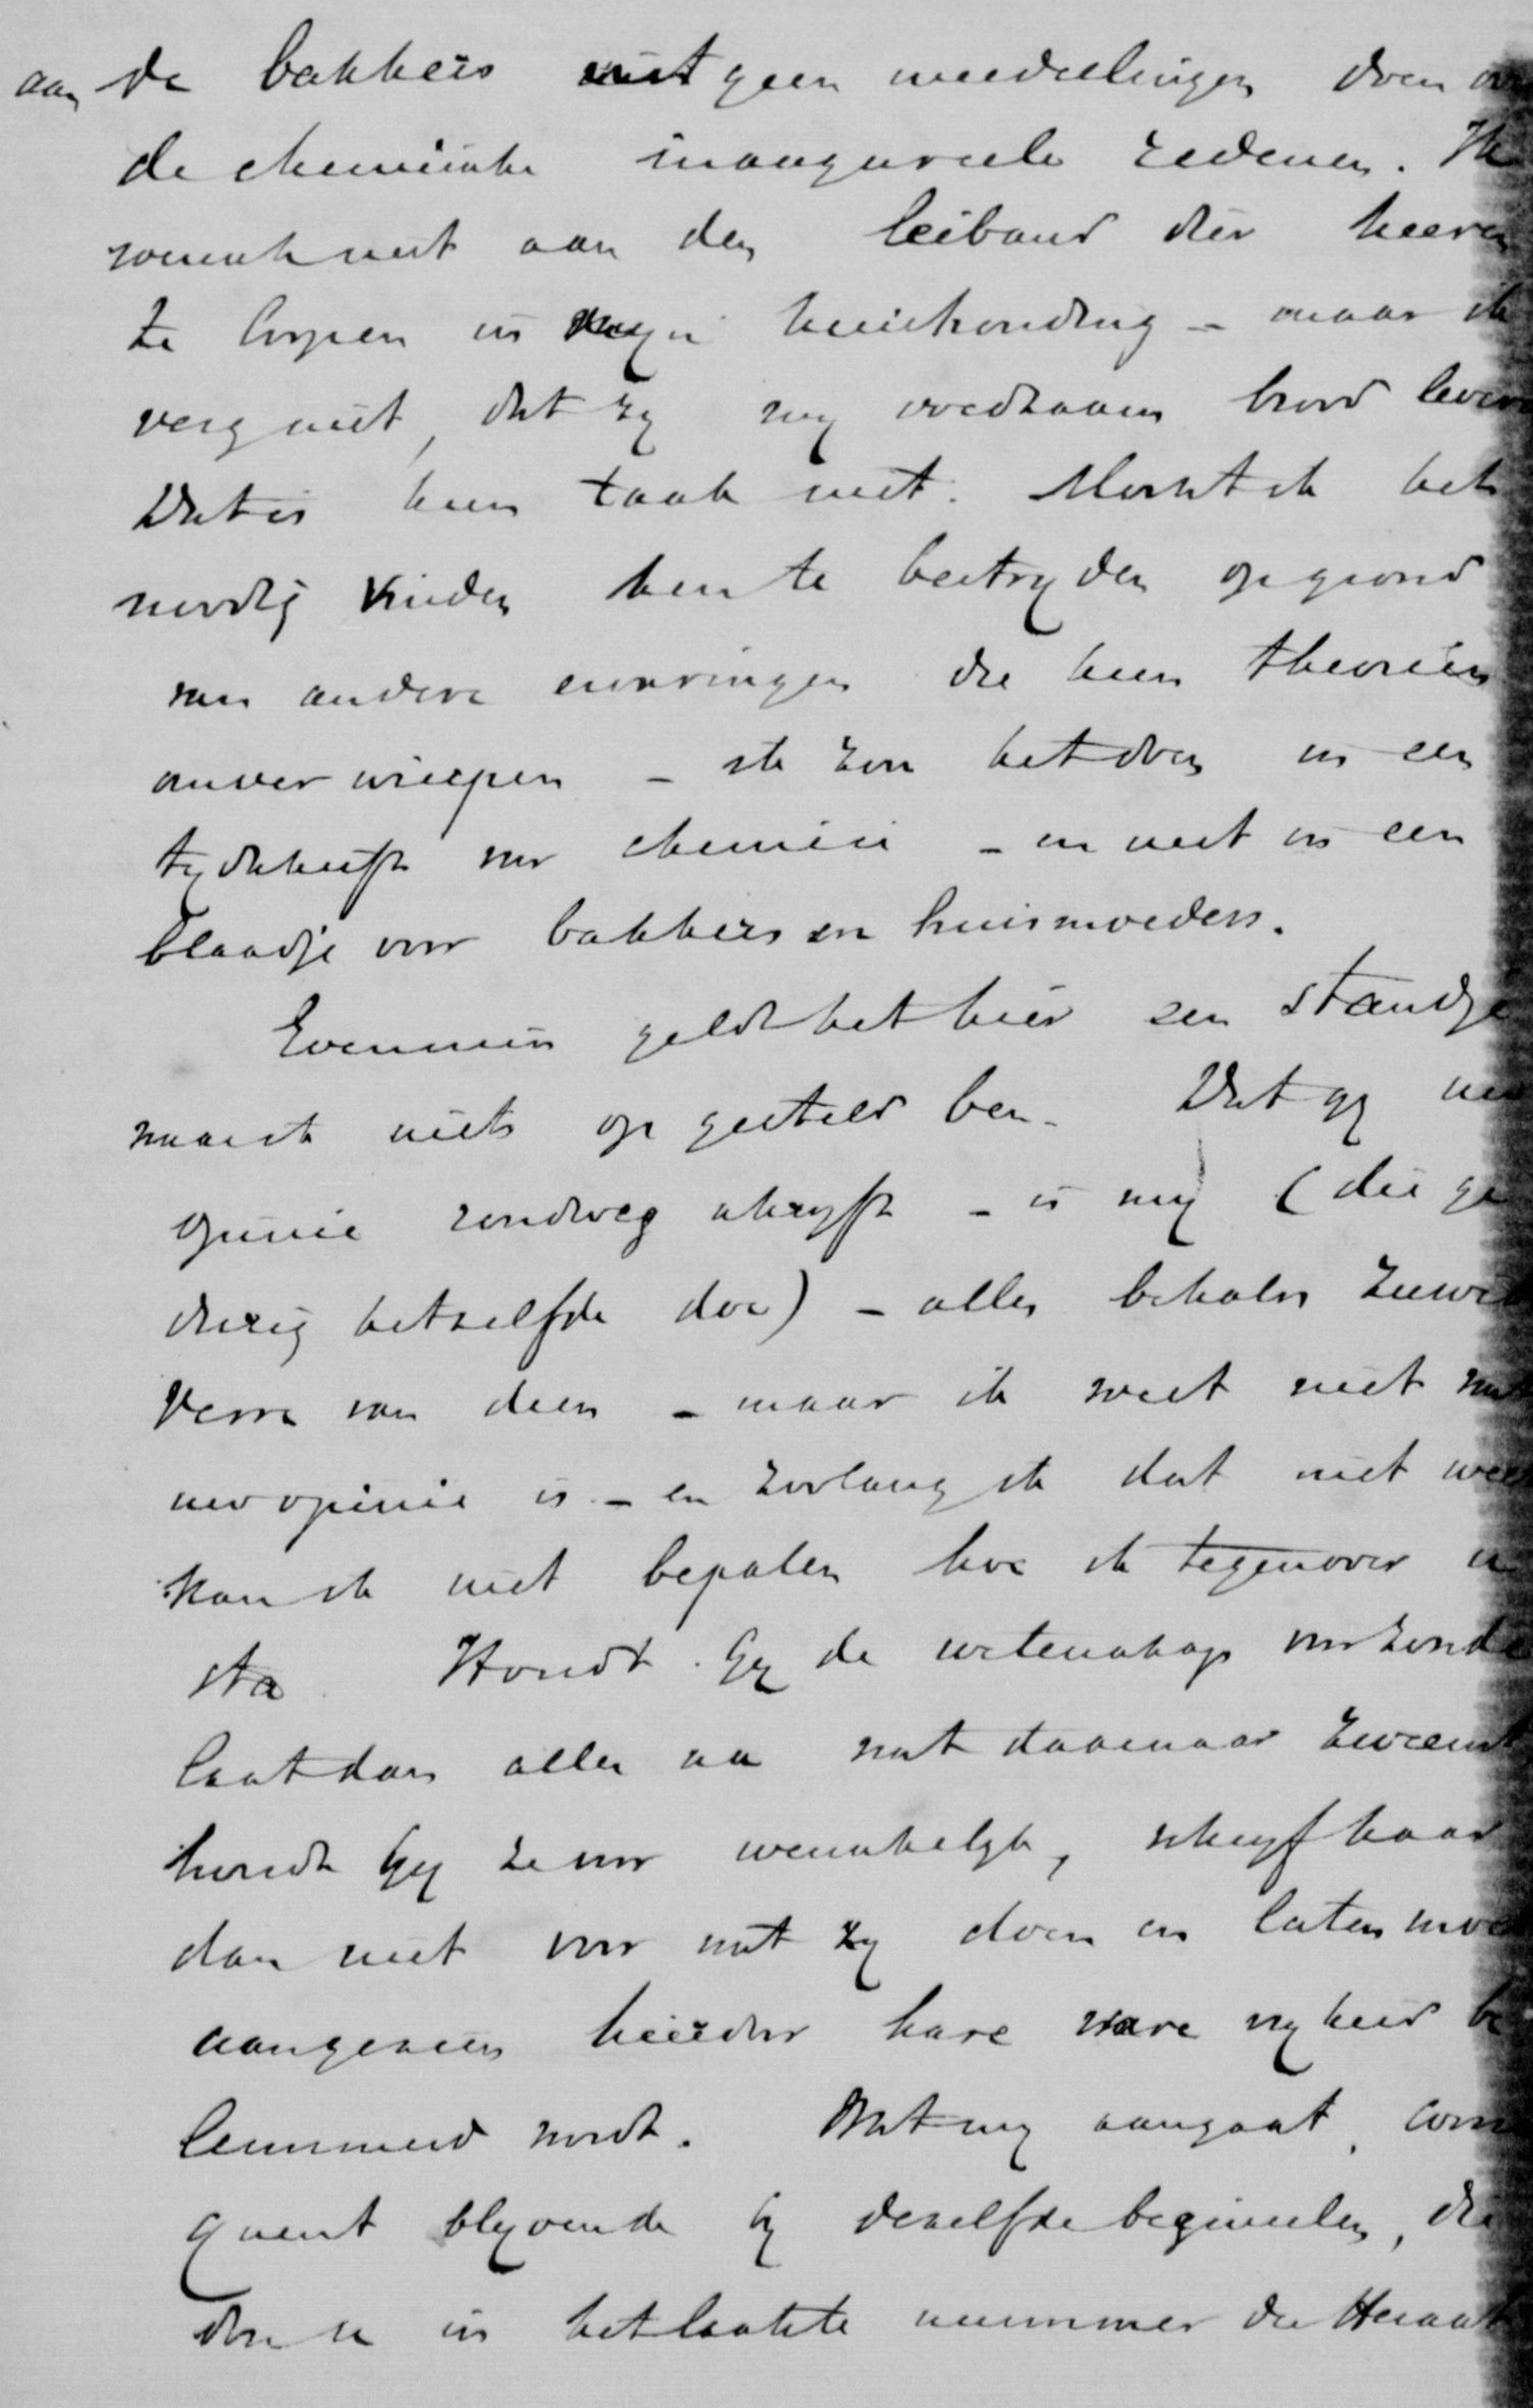 aan de bakkers geen mededeelingen doen
de chemische inaugureele redenen. Ik
wensch niet aan den leiband der heeren
te loopen in myn huishouding - maar ik
verg niet, dat zy my voedzaam brood
Dat is hun taak niet. Mocht ik het
noodig vinden hen te bestryden op grond
van andere ervaringen die hun theorieën
omver wierpen - ik zou het doen in een
tydschrift voor chemici - en niet in een
blaadje voor bakkers en huismoeders.
Evenmin geldt het hier een standje
waar ik niets op gesteld ben. Dat gy uw
opinie rondweg schryft - is my (die ge
durig hetzelfde doe) - alles behalve
Verre van dien - maar ik weet niet wat
uw opinie is - en zoolang ik dat niet weet
kan ik niet bepalen hoe ik tegenover u
sta. Houdt Gy de wetenschap voor zonde
laat dan alles na wat daarnaar zweemt
houdt Gy ze voor wenschelyk, schryf haar
dan niet voor wat zy doen en laten moet
aangezien hierdoor hare ware vryheid be
lemmerd wordt. Wat my aangaat, conse
quent blyvende by dezelfde beginselen, die
in het laatste nummer der